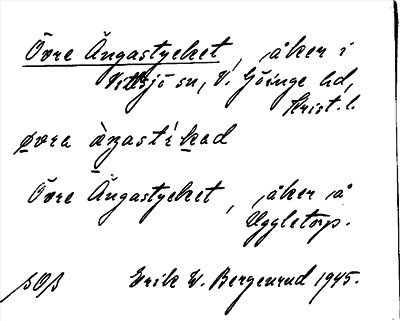 Övre Ängastycket, åker i
Vittsjö sn, V. Göinge hd,
Krist. l.
øvra ängastikad
Övre Ängastycket, åker å
Uggletorp.
Erik W. Bergenrud 1945.